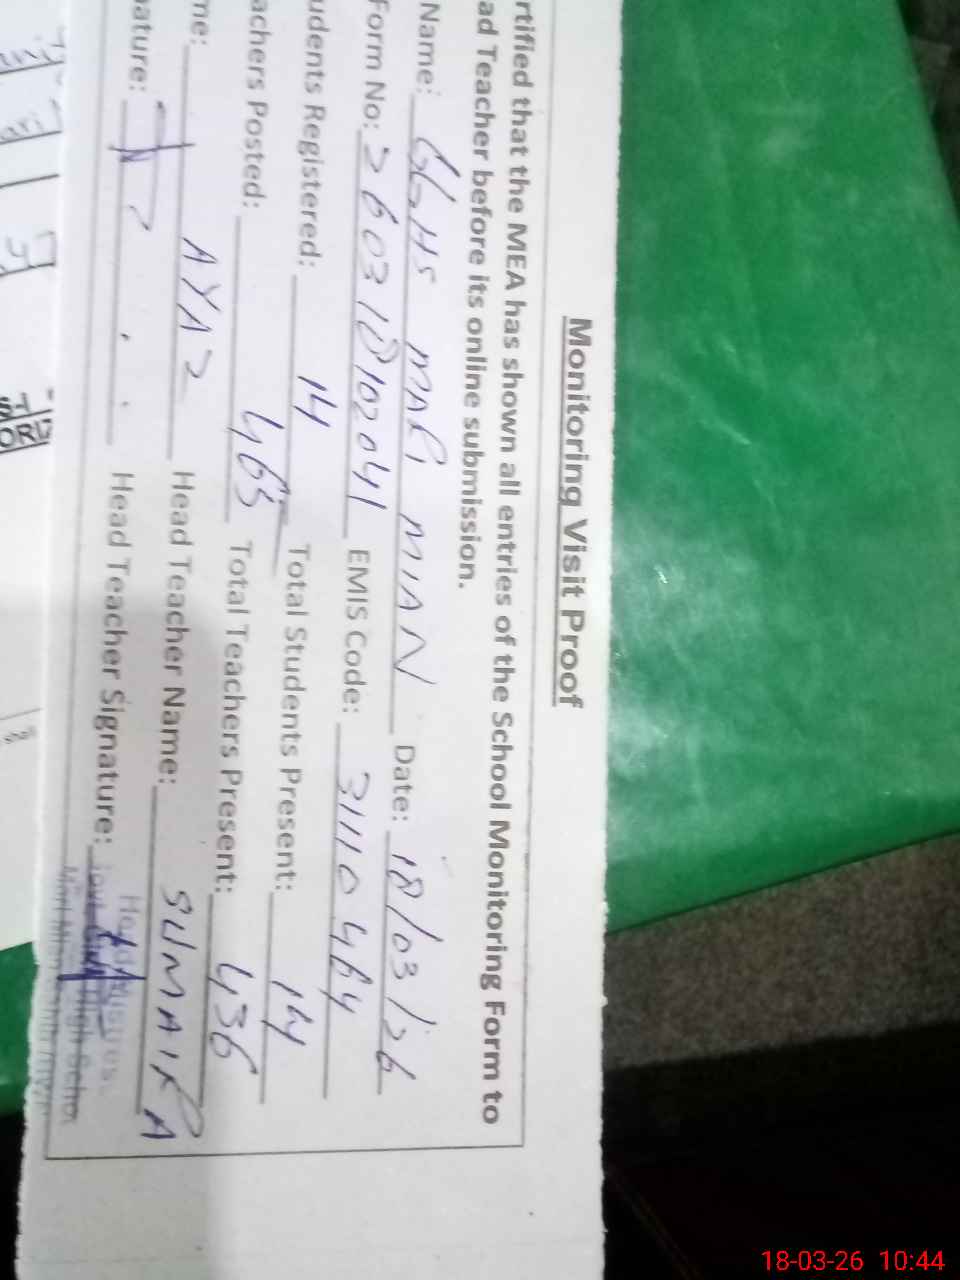 Monitoring Visit Proof
rtified that the MEA has shown all entries of the School Monitoring Form to
ad Teacher before its online submission.
Name: GGHS MARI MIAN Date: 18/03/26
Form No: 260318102041 EMIS Code: 31110464
udents Registered: 14 Total Students Present: 14
achers Posted: 463 Total Teachers Present: 436
me: AYAZ Head Teacher Name: SUMAIRA
nature: Head Teacher Signature:
shall
18-03-26 10:44